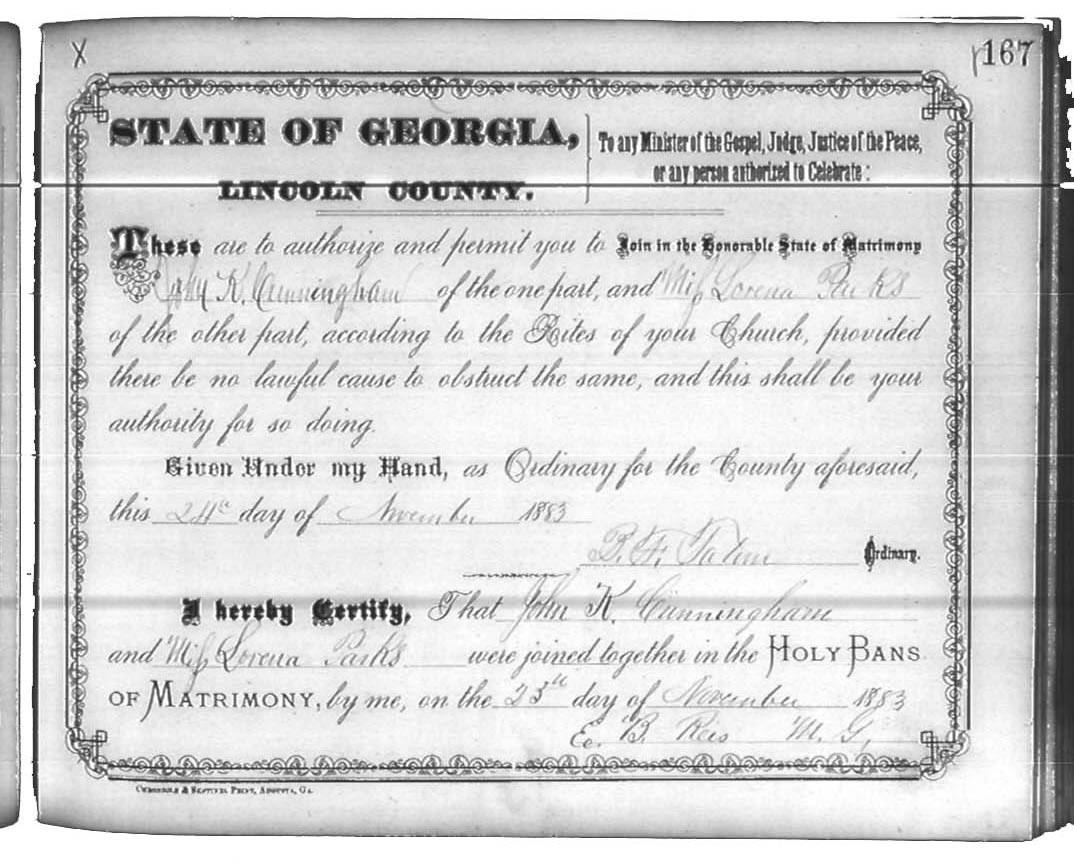 X
167
STATE OF GEORGIA,
LINCOLN COUNTY.
To any Minister of the Gospel, Judge, Justice of the Peace,
or any person authorized to Celebrate:
These are to authorize and permit you to Join in the Honorable State of Matrimony
John K. Cunningham of the one part, and Miss Lorena Parks
of the other part, according to the Rites of your Church, provided
there be no lawful cause to obstruct the same, and this shall be your
authority for so doing.
Given Under my Hand, as Ordinary for the County aforesaid,
this 24th day of November 1883
B. F. Tatom Ordinary.
I hereby Certify, That John K. Cunningham
and Miss Lorena Parks were joined together in the HOLY BANS
OF MATRIMONY, by me, on the 25th day of November 1883
E. B. Reis M. G.
CHRONICLE & SENTINEL PRINT, AUGUSTA, GA.